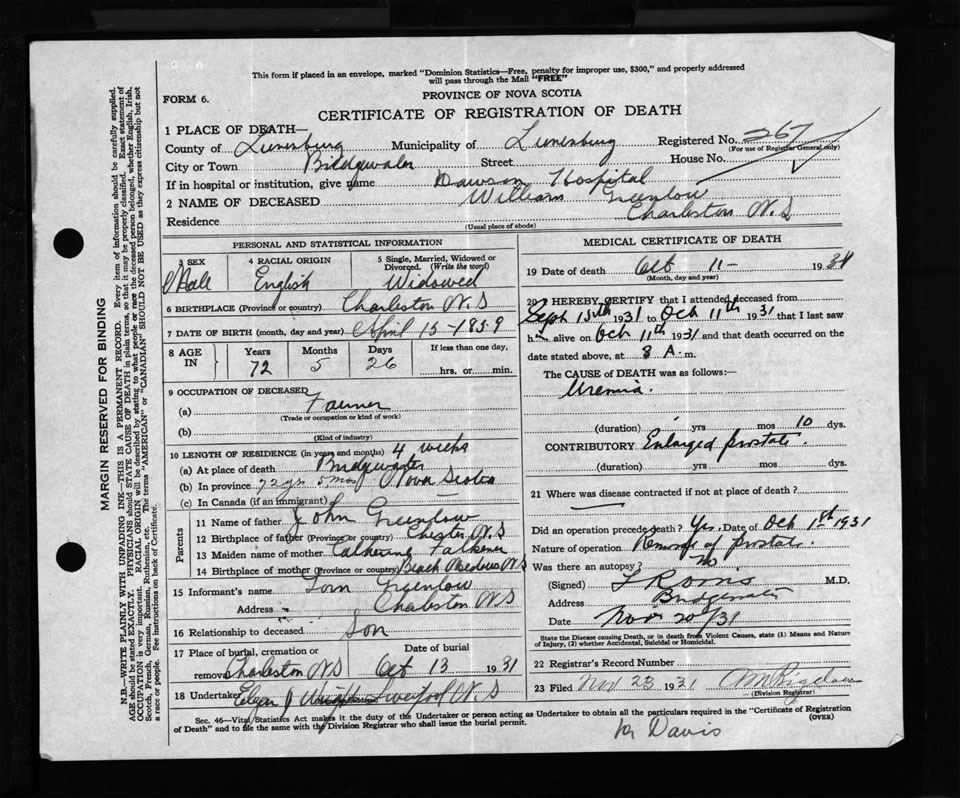 This form if placed in an envelope, marked "Dominion Statistics—Free, penalty for improper use, $300," and properly addressed
will pass through the Mail "FREE"
PROVINCE OF NOVA SCOTIA
FORM 6.
CERTIFICATE OF REGISTRATION OF DEATH
1 PLACE OF DEATH—
County of Lunenburg Municipality of Lunenburg Registered No. 267
(For use of Registrar General only)
City or Town Bridgewater Street House No.
If in hospital or institution, give name Dawson Hospital
2 NAME OF DECEASED William Greenlow
Residence Charleston N.S
(Usual place of abode)
PERSONAL AND STATISTICAL INFORMATION
3 SEX Male
4 RACIAL ORIGIN English
5 Single, Married, Widowed or Divorced. (Write the word) Widowed
6 BIRTHPLACE (Province or country) Charleston N.S
7 DATE OF BIRTH (month, day and year) April 15-1859
8 AGE IN Years Months Days If less than one day,
72 5 26 hrs. or min.
9 OCCUPATION OF DECEASED
(a) Farmer
(Trade or occupation or kind of work)
(b)
(Kind of industry)
10 LENGTH OF RESIDENCE (in years and months) 4 weeks
(a) At place of death Bridgewater
(b) In province 72 yrs 5 mos Nova Scotia
(c) In Canada (if an immigrant)
Parents
11 Name of father John Greenlow
12 Birthplace of father (Province or country) Chester N.S
13 Maiden name of mother Catherine Falkener
14 Birthplace of mother (Province or country) Beach Medway N.S
15 Informant's name Tom Greenlow
Address Charleston N.S
16 Relationship to deceased Son
17 Place of burial, cremation or removal Date of burial
Charleston N.S Oct 13 1931
18 Undertaker Liverpool N.S
MEDICAL CERTIFICATE OF DEATH
19 Date of death Oct 11- 1931
(Month, day and year)
20 I HEREBY CERTIFY that I attended deceased from
Sept 15th 1931 to Oct 11th 1931 that I last saw
him alive on Oct 11th 1931 and that death occurred on the
date stated above, at 8 A.m.
The CAUSE of DEATH was as follows:—
Uremia.
(duration) yrs mos 10 dys.
CONTRIBUTORY Enlarged prostate.
(duration) yrs mos dys.
21 Where was disease contracted if not at place of death?
Did an operation precede death? Yes. Date of Oct 1st 1931
Nature of operation Removal of prostate.
Was there an autopsy? no
(Signed) M.D.
Address Bridgewater
Date Nov 20/31
State the Disease causing Death, or in death from Violent Causes, state (1) Means and Nature
of Injury, (2) whether Accidental, Suicidal or Homicidal.
22 Registrar's Record Number
23 Filed Nov 23 1931
(Division Registrar)
Sec. 46—Vital Statistics Act makes it the duty of the Undertaker or person acting as Undertaker to obtain all the particulars required in the "Certificate of Registration
of Death" and to file the same with the Division Registrar who shall issue the burial permit. (OVER)
Davis
MARGIN RESERVED FOR BINDING
N.B.—WRITE PLAINLY WITH UNFADING INK—THIS IS A PERMANENT RECORD. Every item of information should be carefully supplied.
AGE should be stated EXACTLY. PHYSICIANS should STATE CAUSE OF DEATH in plain terms, so that it may be properly classified. Exact statement of
OCCUPATION is very important. RACIAL ORIGIN will be described by stating to what people or race the deceased person belonged, whether English, Irish,
Scotch, French, German, Russian, Ruthenian, etc. The terms "AMERICAN" or "CANADIAN" SHOULD NOT BE USED as they express citizenship but not
a race or people. See instructions on back of Certificate.